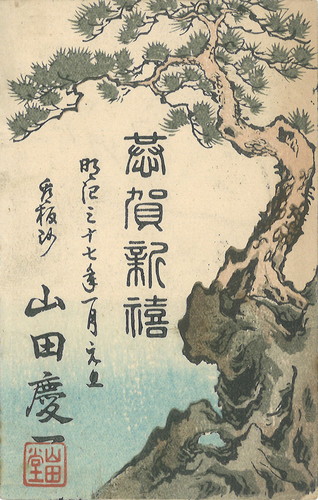 恭賀新禧
明治三十七年一月元旦
山田慶一
山田堂